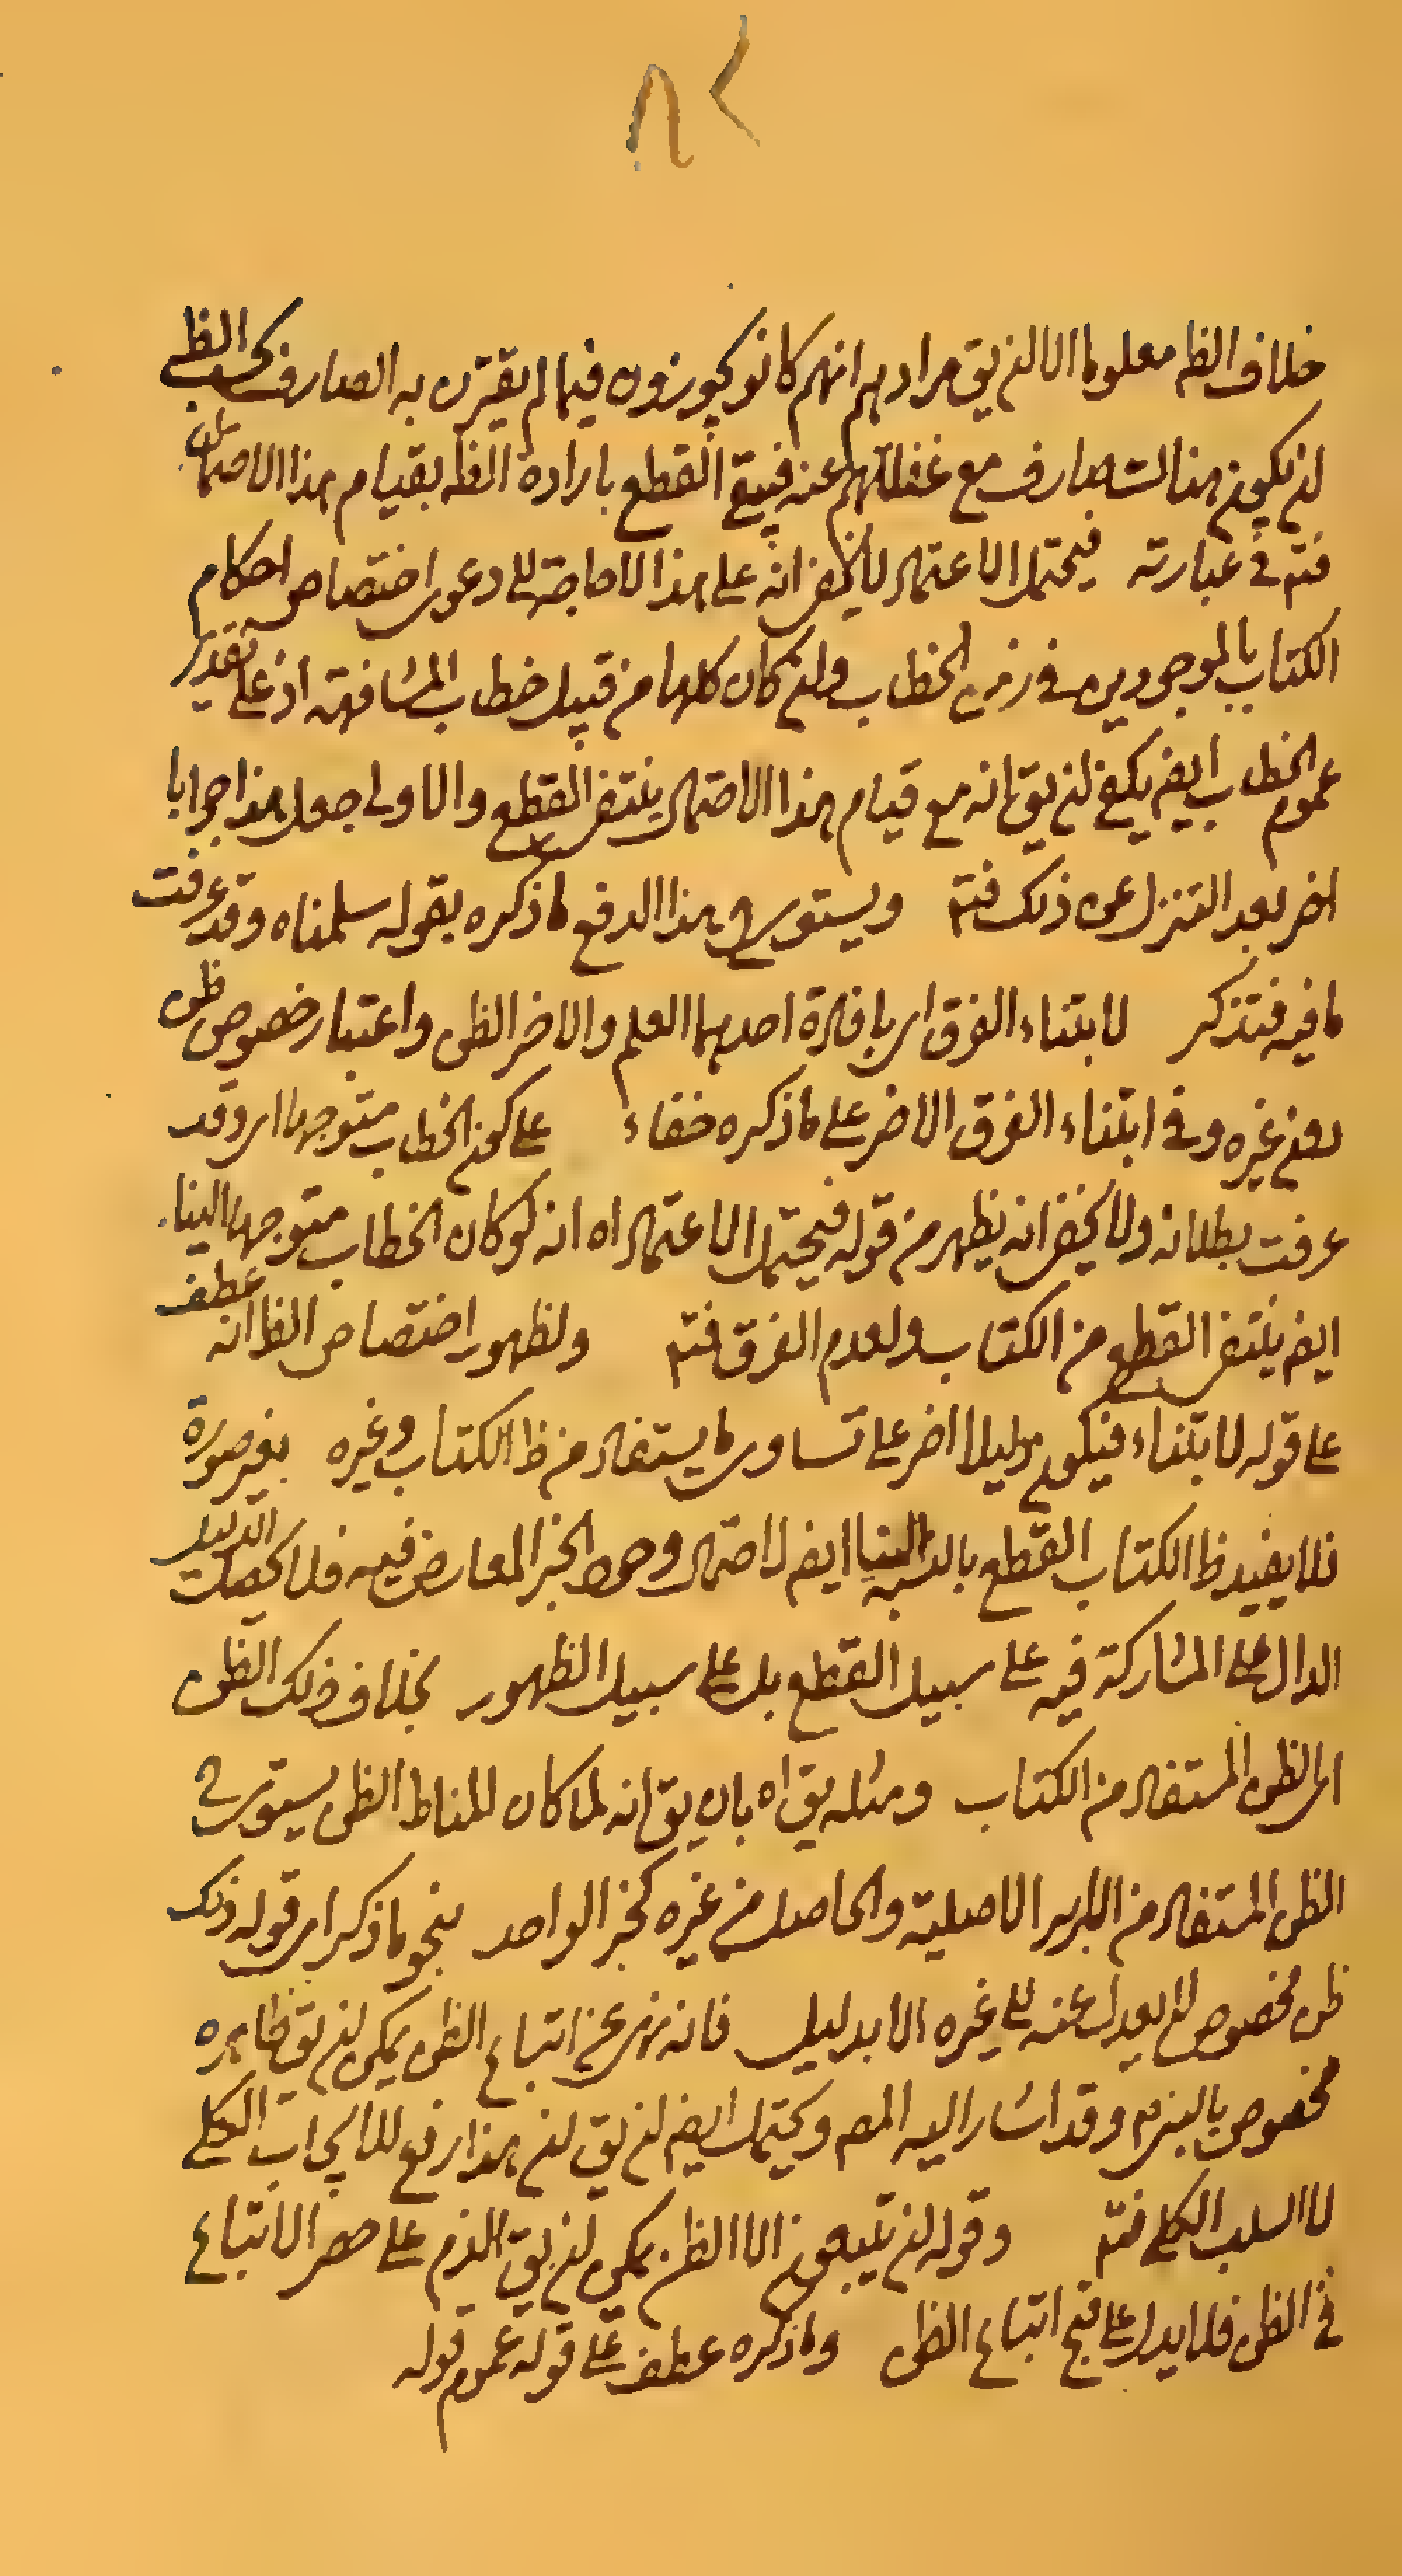 ٨٢
خلاف الظ معلوما الا ان يق مرادهم انهم كانو يجوزون فيما لم يقترن به الصارف بحسب الظ
ان يكون هناك صارف مع غفلتهم عنه فينتفي القطع بارادة الظ بقيام هذا الاحتمال
فتم في عبارته فيحتمل الاعتماد لا يخفى انه على هذا لا حاجة الى دعوى اختصاص احكام
الكتاب بالموجودين في زمن الخطاب وان كان كلها من قبيل خطاب المشافهة اذ على تقدير
عموم الخطاب ايضا يكفي ان يق انه مع قيام هذا الاحتمال ينتفي القطع والاولى جعل هذا جوابا
اخر بعد التنزل عن ذلك فتم ويستوي هذا الدفع ما ذكره بقوله سلمناه وقد عرفت
ما فيه فتذكر لابتناء الفرق اي بافادة احدهما العلم والاخر الظن واعتبار خصوص ظن
دون غيره وفي ابتناء الفرق الاخر على ما ذكره خفاء على كون الخطاب متوجها اي وقد
عرفت بطلانه ولا يخفى انه يظهر من قوله فيحتمل الاعتماد اه انه لو كان الخطاب متوجها الينا
ايض ينتفي القطع من الكتاب ولعدم الفرق فتم ولظهور اختصاص الظ انه عطف
على قوله لابتناء فيكون دليلا اخر على تساوي ما يستفاد من ظ الكتاب وغيره بغير صورة
فلا يفيد ظ الكتاب القطع بالنسبة الينا ايض لاحتمال وجود الخبر المعارض فيه فلا يحصل الدليل
الدال على المشاركة فيه على سبيل القطع بل على سبيل الظهور بخلاف ذلك الظن
اي الظن المستفاد من الكتاب ومثله يق اه بان يق انه لما كان المناط الظن يستوي في
الظن المستفاد من البراءة الاصلية والحاصل من غيره كخبر الواحد بنحو ما ذكر اي قوله ذلك
ظن مخصوص لن يعدل عنه الى غيره الا بدليل فانه نهي عن اتباع الظن يمكن ان يق ظاهره
مخصوص بالنبي ص وقد اشار اليه المص ويحتمل ايض ان يق ان هذا رفع للايجاب الكلي
لا السلب الكلي فتم وقوله ان يتبعون الا الظن يمكن ان يق الذم على حصر الاتباع
في الظن فلا يدل على قبح اتباع الظن وما ذكره عطف على قوله عموم قوله